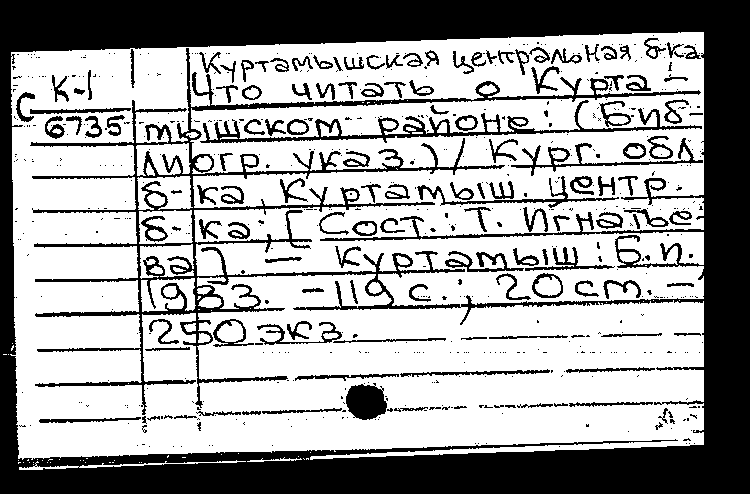 Куртамышская центральная б-ка.
К-1 Что читать о Курта-
С 6735 мышском районе: (Биб-
лиогр. указ.) / Кург. обл.
б-ка, Куртамыш. центр.
б-ка; [Сост.: Т. Игнатье-
ва]. — Куртамыш: Б.и.
1983. -119 с.; 20 cm. -
250 экз.